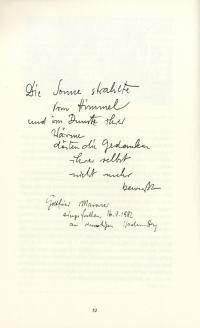 Die Sonne strahlte
vom Himmel
und im Dunste ihrer
Wärme
dösten die Gedanken
ihrer selbst
nicht mehr
bewußt
Gottfried
eingefallen 16.7.1982
am